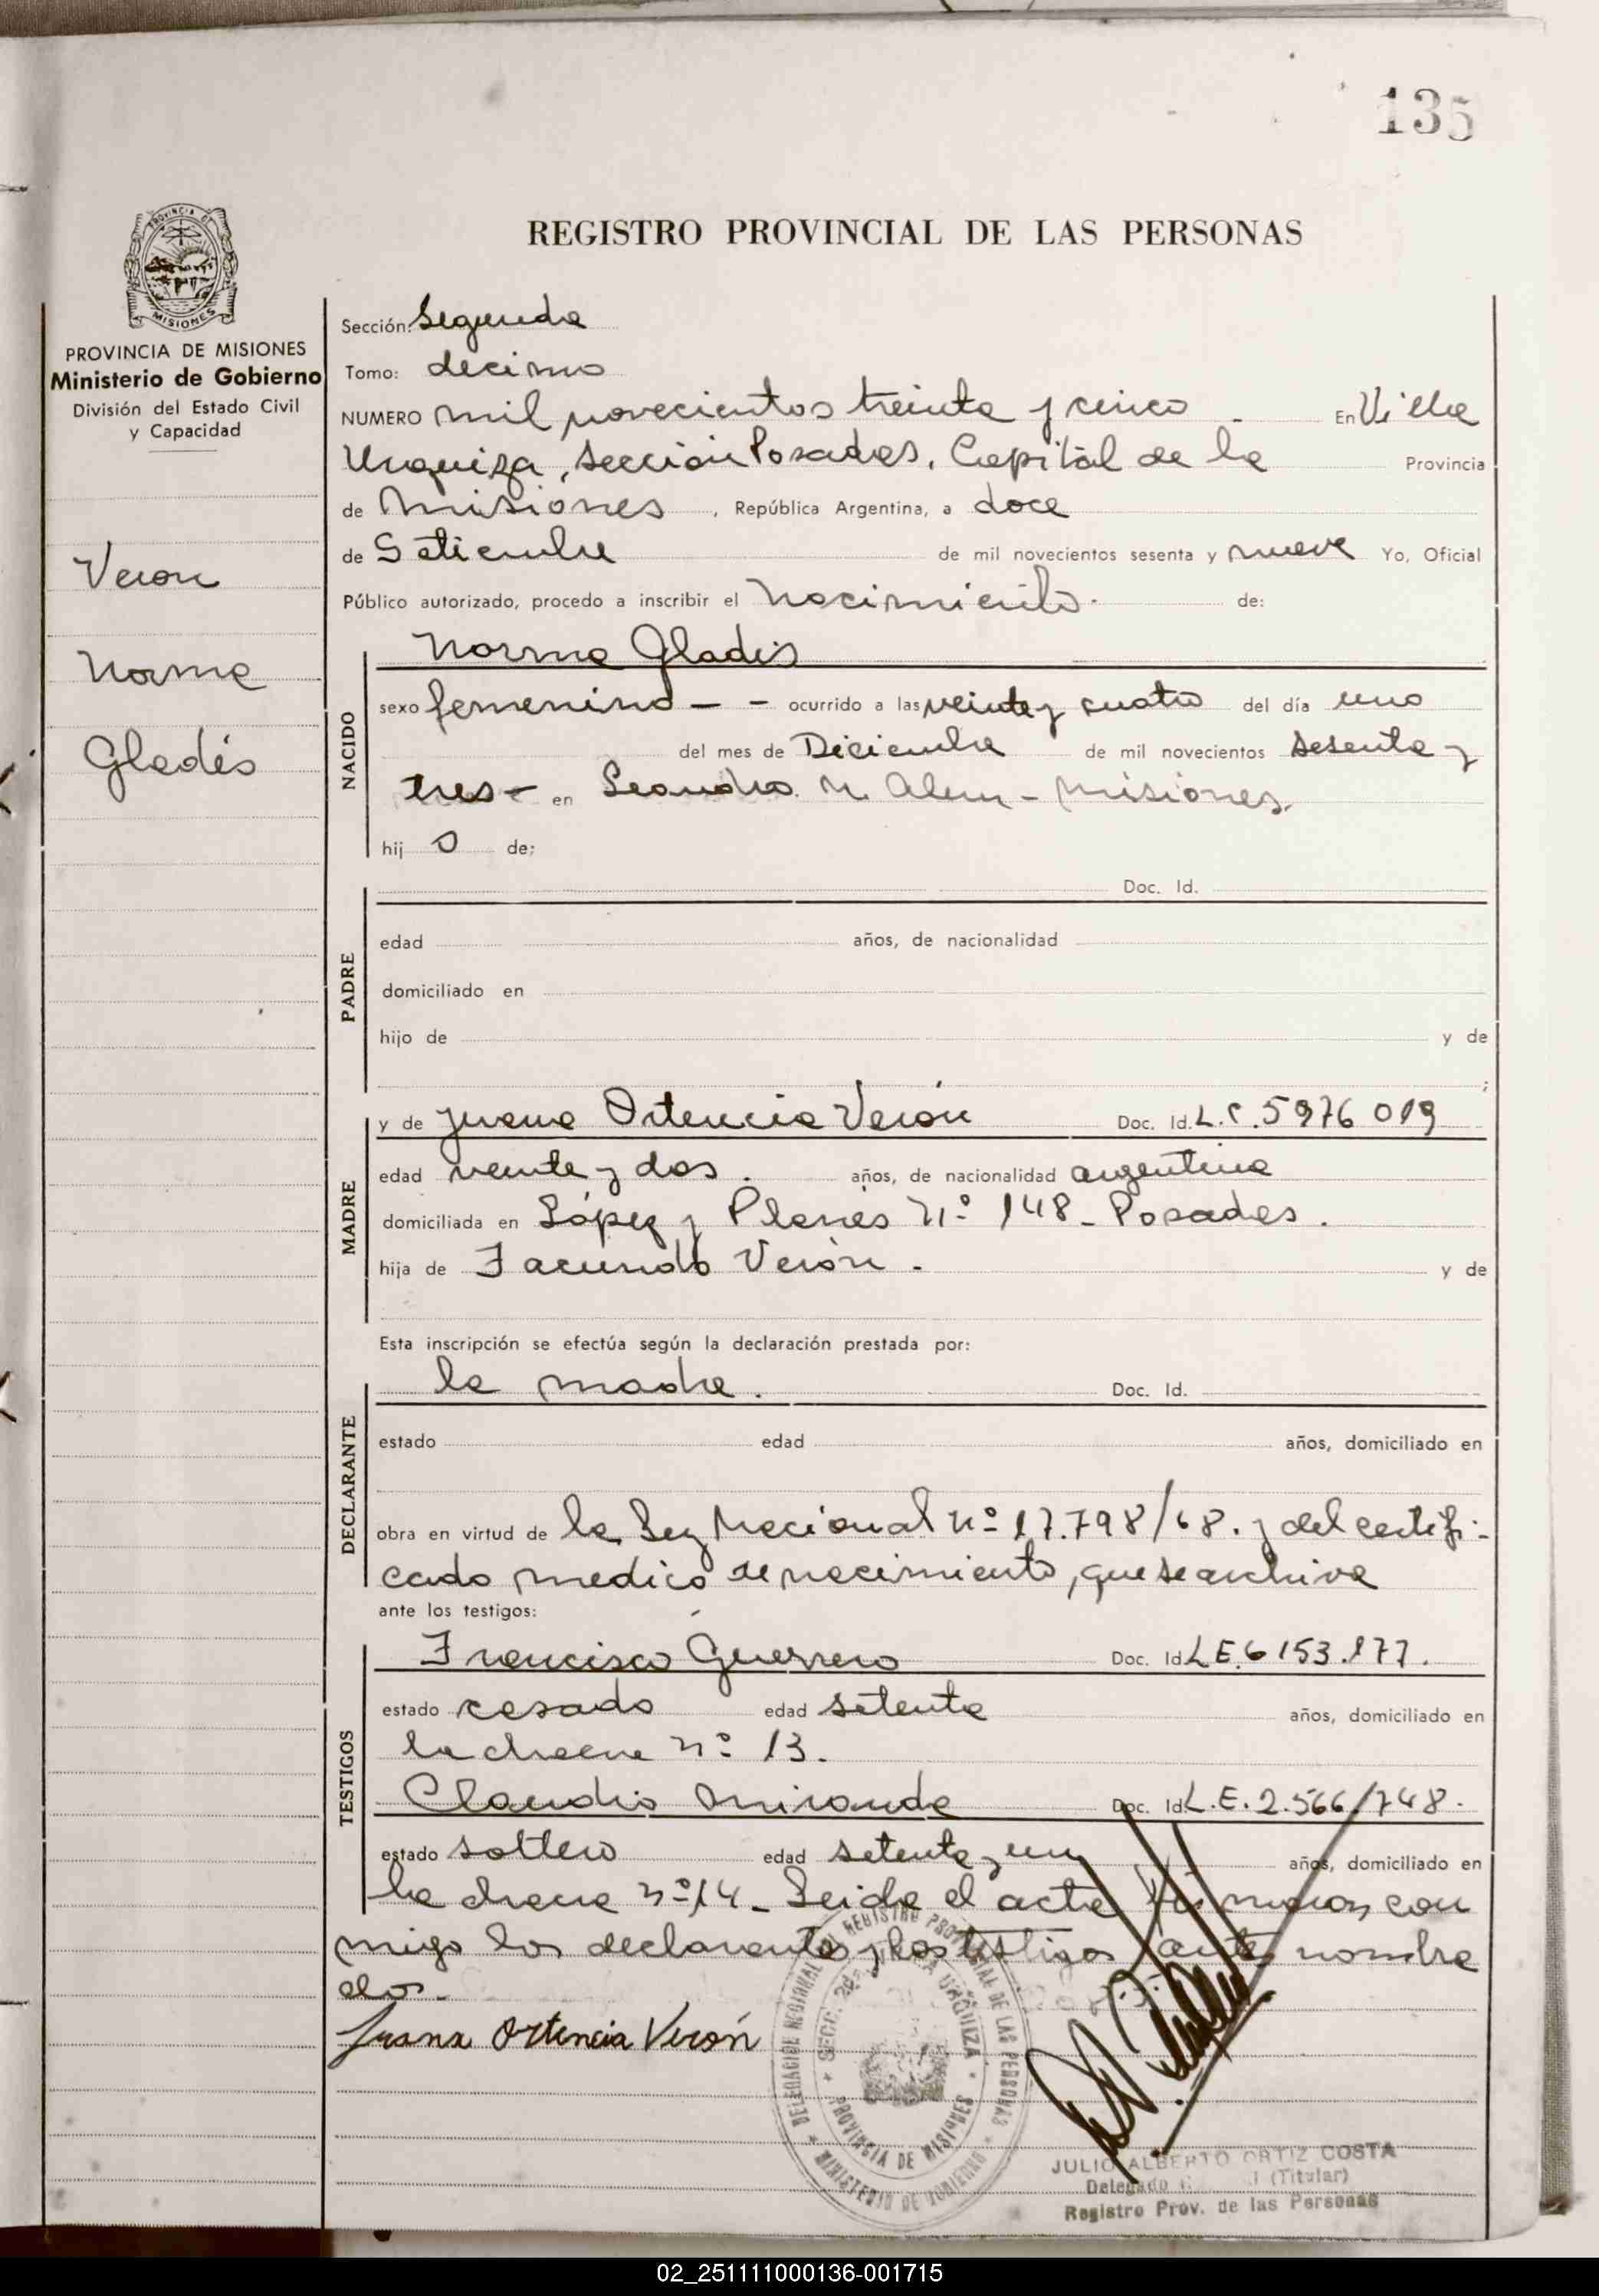 135
REGISTRO PROVINCIAL DE LAS PERSONAS
PROVINCIA DE MISIONES
PROVINCIA DE MISIONES
Ministerio de Gobierno
División del Estado Civil
y Capacidad
Veron
Norma
Gladis
Sección: Segunda
Tomo: decimo
NUMERO mil novecientos treinta y cinco - En Villa
Urquiza, Sección Posadas, Capital de la Provincia
de Misiones, República Argentina, a doce
de Setiembre de mil novecientos sesenta y nueve Yo, Oficial
Público autorizado, procedo a inscribir el Nacimiento- de:
NACIDO
Norma Gladis
sexo femenino - - ocurrido a las veinte y cuatro del día uno
del mes de Diciembre de mil novecientos sesenta y
tres- en Leandro N. Alem - Misiones.
hij a de:
PADRE
Doc. Id.
edad años, de nacionalidad
domiciliado en
hijo de y de
;
MADRE
y de Juana Ortencia Verón Doc. Id. L.C. 5976019
edad veinte y dos. años, de nacionalidad argentina
domiciliada en López y Planes N.º 148- Posadas.
hija de Facundo Verón. y de
Esta inscripción se efectúa según la declaración prestada por:
DECLARANTE
la madre. Doc. Id.
estado edad años, domiciliado en
obra en virtud de la Ley Nacional nº 17.798/68. y del certifi-
cado medico de nacimiento, que se archiva
ante los testigos:
TESTIGOS
Francisco Guerrero Doc. Id. L E. 6153.177.
estado casado edad setenta años, domiciliado en
la chacra nº 13.
Claudio Miranda Doc. Id. L.E. 2.566.748.
estado soltero edad setenta y un años, domiciliado en
la chacra nº 14- Leida el acta firman con
migo los declarante y los testigos antes nombra
dos.-
Juana Ortencia Verón
DELEGACION REGIONAL REGISTRO PROVINCIAL DE LAS PERSONAS
MINISTERIO DE GOBIERNO
SECC. 2da. VILLA URQUIZA
PROVINCIA DE MISIONES
JULIO ALBERTO ORTIZ COSTA
Delegado (Titular)
Registro Prov. de las Personas
02_251111000136-001715